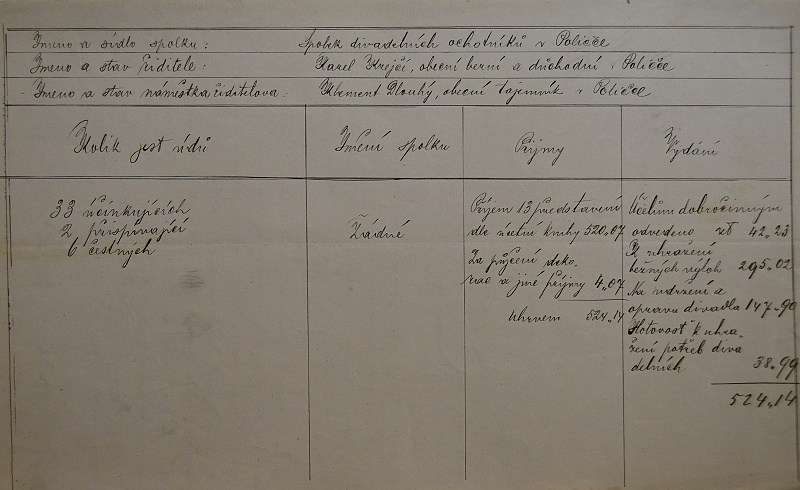 Jmeno a sídlo spolku: Spolek divadelních ochotníků v Poličce
Jmeno a stav řiditele: Karel Krejčí, obecní berní a důchodní v Poličce
Jmeno a stav náměstka řiditelova: Klement Dlouhý, obecní tajemník v Poličce
Kolik jest údů
33 účinkujících
2 přispívající
6 čestných
Jmění spolku
Žádné
Příjmy
Příjem 13 představení
dle účetní knihy 520.07
Za půjčení deko-
rac a jiné příjmy 4.07
Uhrnem 524.14
Vydání
Účelům dobročinným
odvedeno 42.23
K uhražení
běžných výloh 295.02
Na udržení a
opravu divadla 147.90
Hotovost k uhra-
žení potřeb diva
delních 38.99
524.14